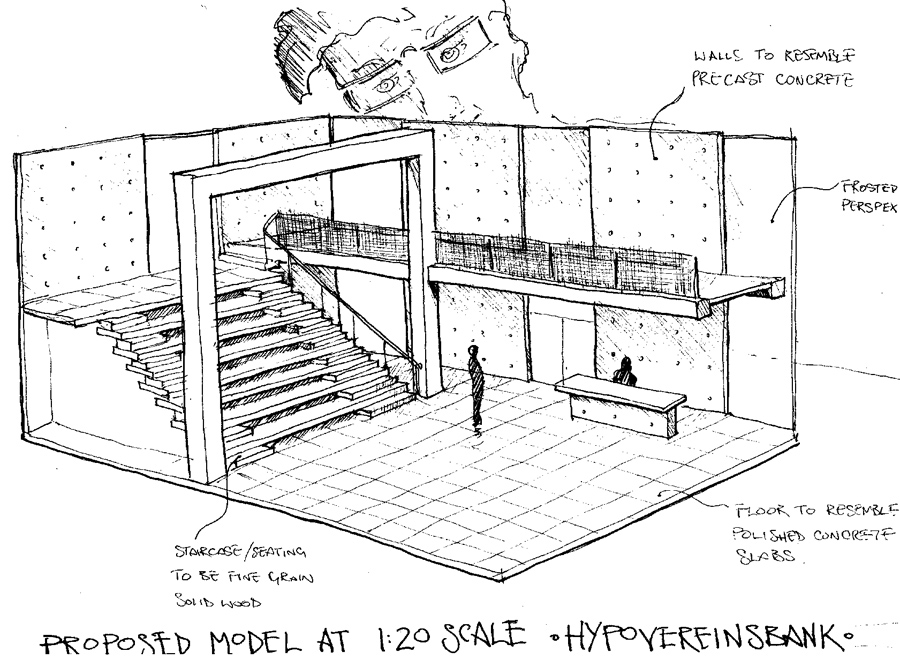 WALLS TO RESEMBLE
PRECAST CONCRETE
FROSTED
PERSPEX
FLOOR TO RESEMBLE
POLISHED CONCRETE
SLABS.
STAIRCASE/SEATING
TO BE FINE GRAIN
SOLID WOOD
PROPOSED MODEL AT 1:20 SCALE •HYPOVEREINSBANK•